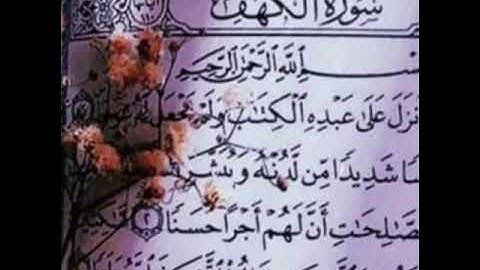 سُورَةُ الْكَهْفِ
سْمِ اللَّهِ الرَّحْمَٰنِ الرَّحِيمِ
نزَلَ عَلَىٰ عَبْدِهِ الْكِتَابَ وَلَمْ يَجْعَل لَّهُ عِوَجًا
سًا شَدِيدًا مِّن لَّدُنْهُ وَيُبَشِّرَ
صَّالِحَاتِ أَنَّ لَهُمْ أَجْرًا حَسَنًا ٢ مَّاكِثِ